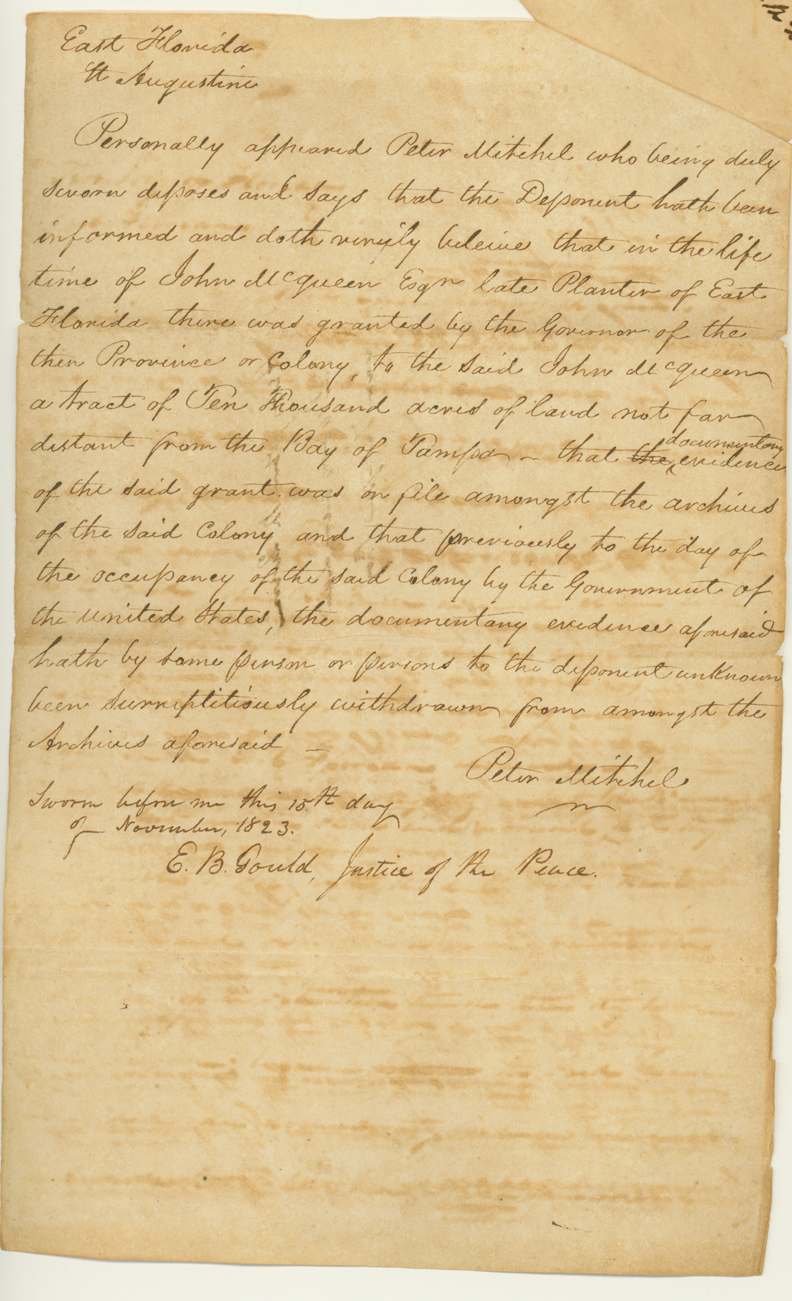 East Florida
St Augustine
Personally appeared Peter Mitchel who being duly
sworn deposes and says that the Deponent hath been
informed and doth verily beleive that in the life
time of John McQueen Esqr late Planter of East
Florida there was granted by the Governor of the
then Province or Colony, to the said John McQueen
a tract of Ten Thousand acres of land not far
distant from the Bay of Tampa - that the documentary evidence
of the said grant was on file amongst the archives
of the said Colony and that previously to the day of
the occupancy of the said Colony by the Government of
the United States, the documentary evidence aforesaid
hath by some person or persons to the deponent unknown
been surreptitiously withdrawn from amongst the
Archives aforesaid —
Peter Mitchel
Sworn before me this 15th day
of November, 1823.
E. B. Gould, Justice of the Peace.